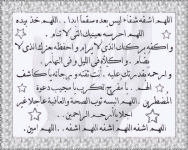 اللهم اشفه شفاء ليس بعده سقما ابدا .. اللهم خذ بيده
اللهم احرسه بعينك التي لا تنام ..
واكفه بركنك الذي لا يرام واحفظه بعزك الذي لا
يضام .. واكلأه في الليل وفي النهار
وارحمه بقدرتك عليه .. أنت ثقته ورجائه يا كاشف
الهم .. يا مفرج الكرب يا مجيب دعوة
المضطرين .. اللهم البسه ثوب الصحة والعافية عاجلا غير
اجلا يا أرحم الراحمين ..
اللهم اشفه اللهم اشفه اللهم اشفه .. اللهم امين .